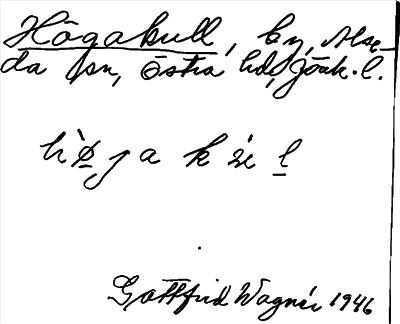 Högakull, by, Alse-
da sn, Östra hd, Jönk. l.
hø̱̀ja kúl̠
Gottfrid Wagnér 1946